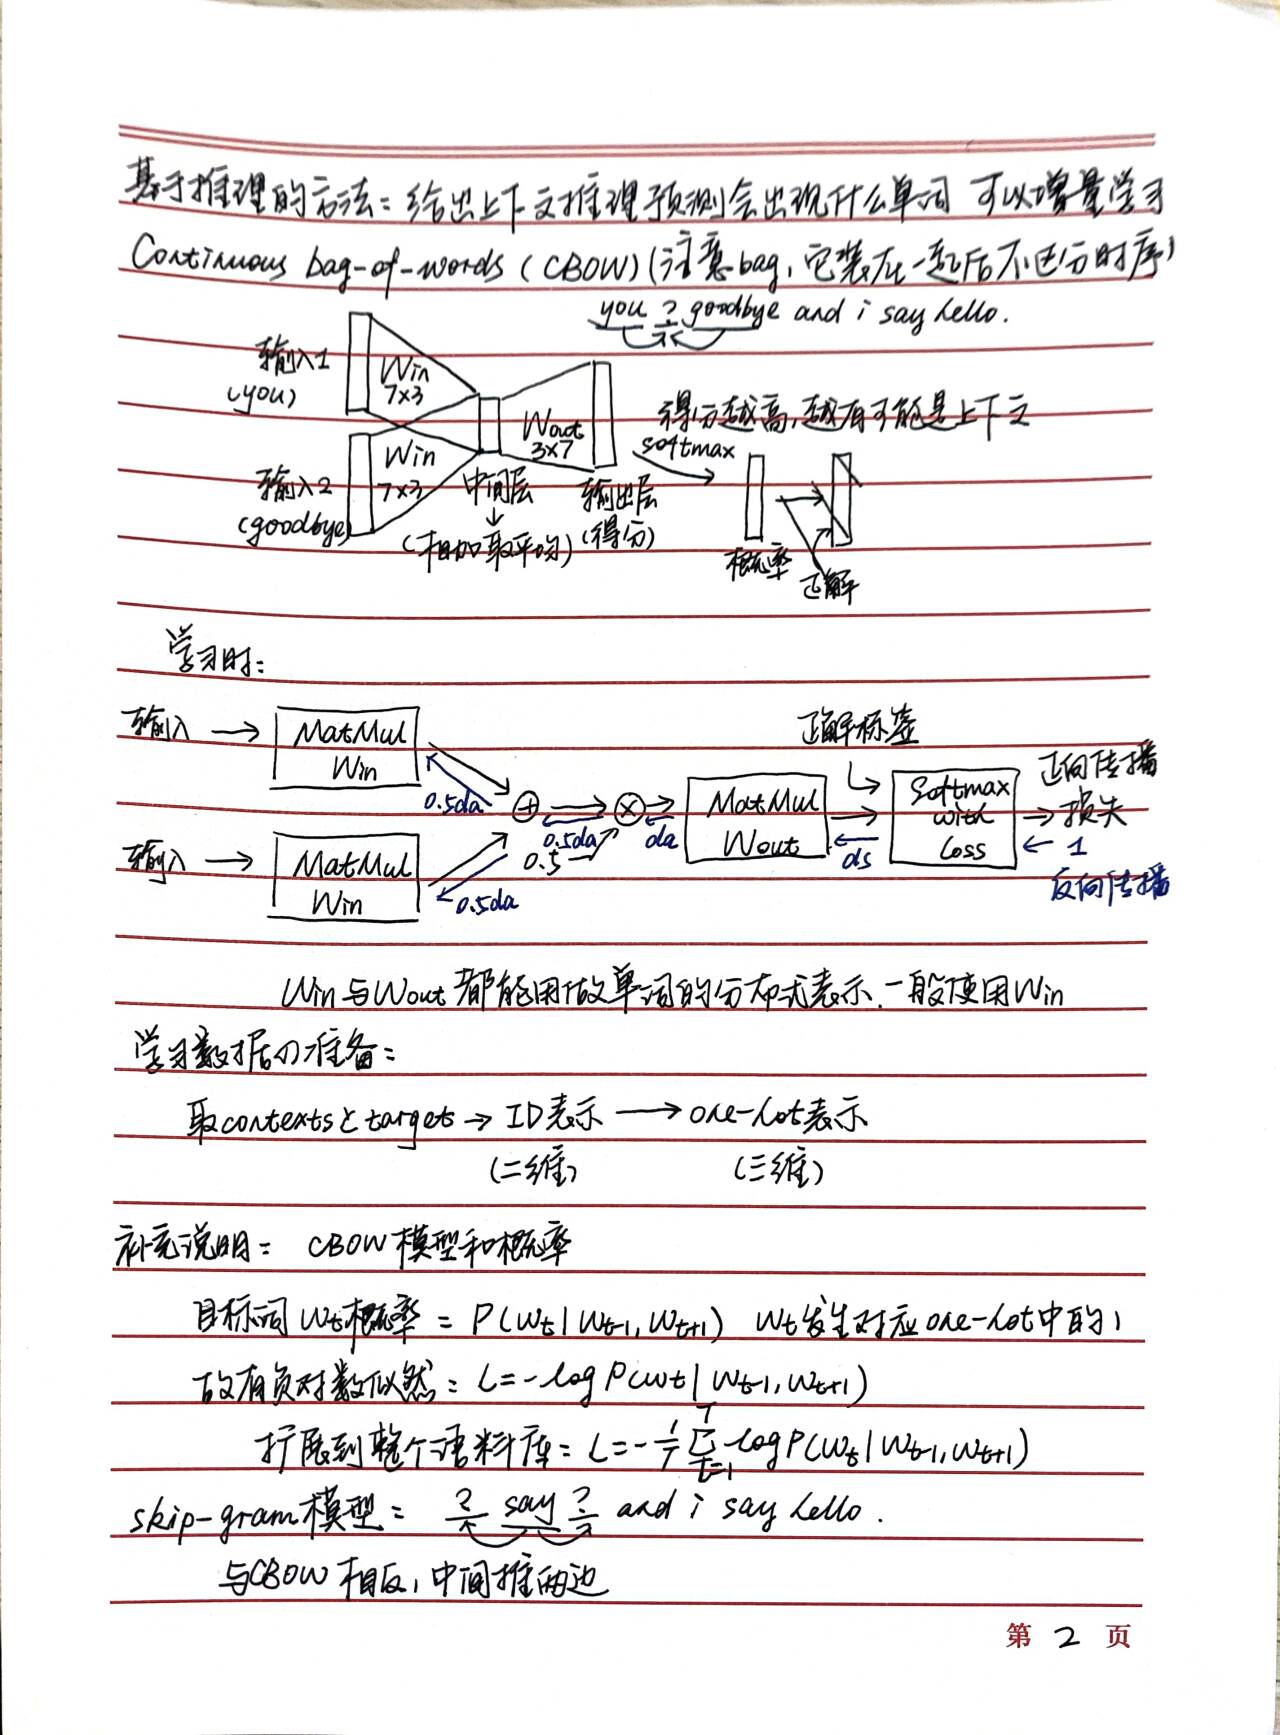 基于推理的方法：给出上下文推理预测会出现什么单词 可以增量学习
Continuous bag-of-words (CBOW) (注意bag，它装在一起后不区分时序)
you ? goodbye and i say hello.
输入1
(you)
Win
7×3
Wout
3×7
得分越高，越有可能是上下文
softmax
输入2
(goodbye)
Win
7×3
中间层
输出层
(相加取平均)
(得分)
概率
正解
学习时：
输入
MatMul
Win
0.5da
正解标签
正向传播
+
0.5da
×
da
MatMul
Wout
ds
Softmax
with
Loss
损失
0.5
1
输入
MatMul
Win
0.5da
反向传播
Win与Wout都能用做单词的分布式表示，一般使用Win
学习数据の准备：
取contextsとtarget → ID表示 → one-hot表示
(二维)
(三维)
补充说明： CBOW模型和概率
目标词Wt概率 = P(Wt|Wt-1, Wt+1) Wt发生对应one-hot中的1
故有负对数似然：L=-log P(wt|Wt-1, Wt+1)
扩展到整个语料库：L=-1/T Σ(t=1→T) log P(Wt|Wt-1, Wt+1)
skip-gram模型： ? say ? and i say hello.
与CBOW相反，中间推两边
第 2 页